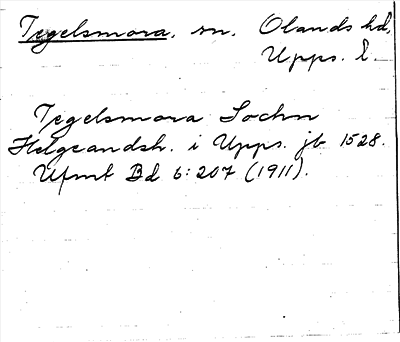 Tegelsmora, sn, Olands hd,
Upps. l.
Tegelsmora Sochn
Helgeandsh. i Upps. jb 1528.
Ufmt Bd 6:207 (1911).